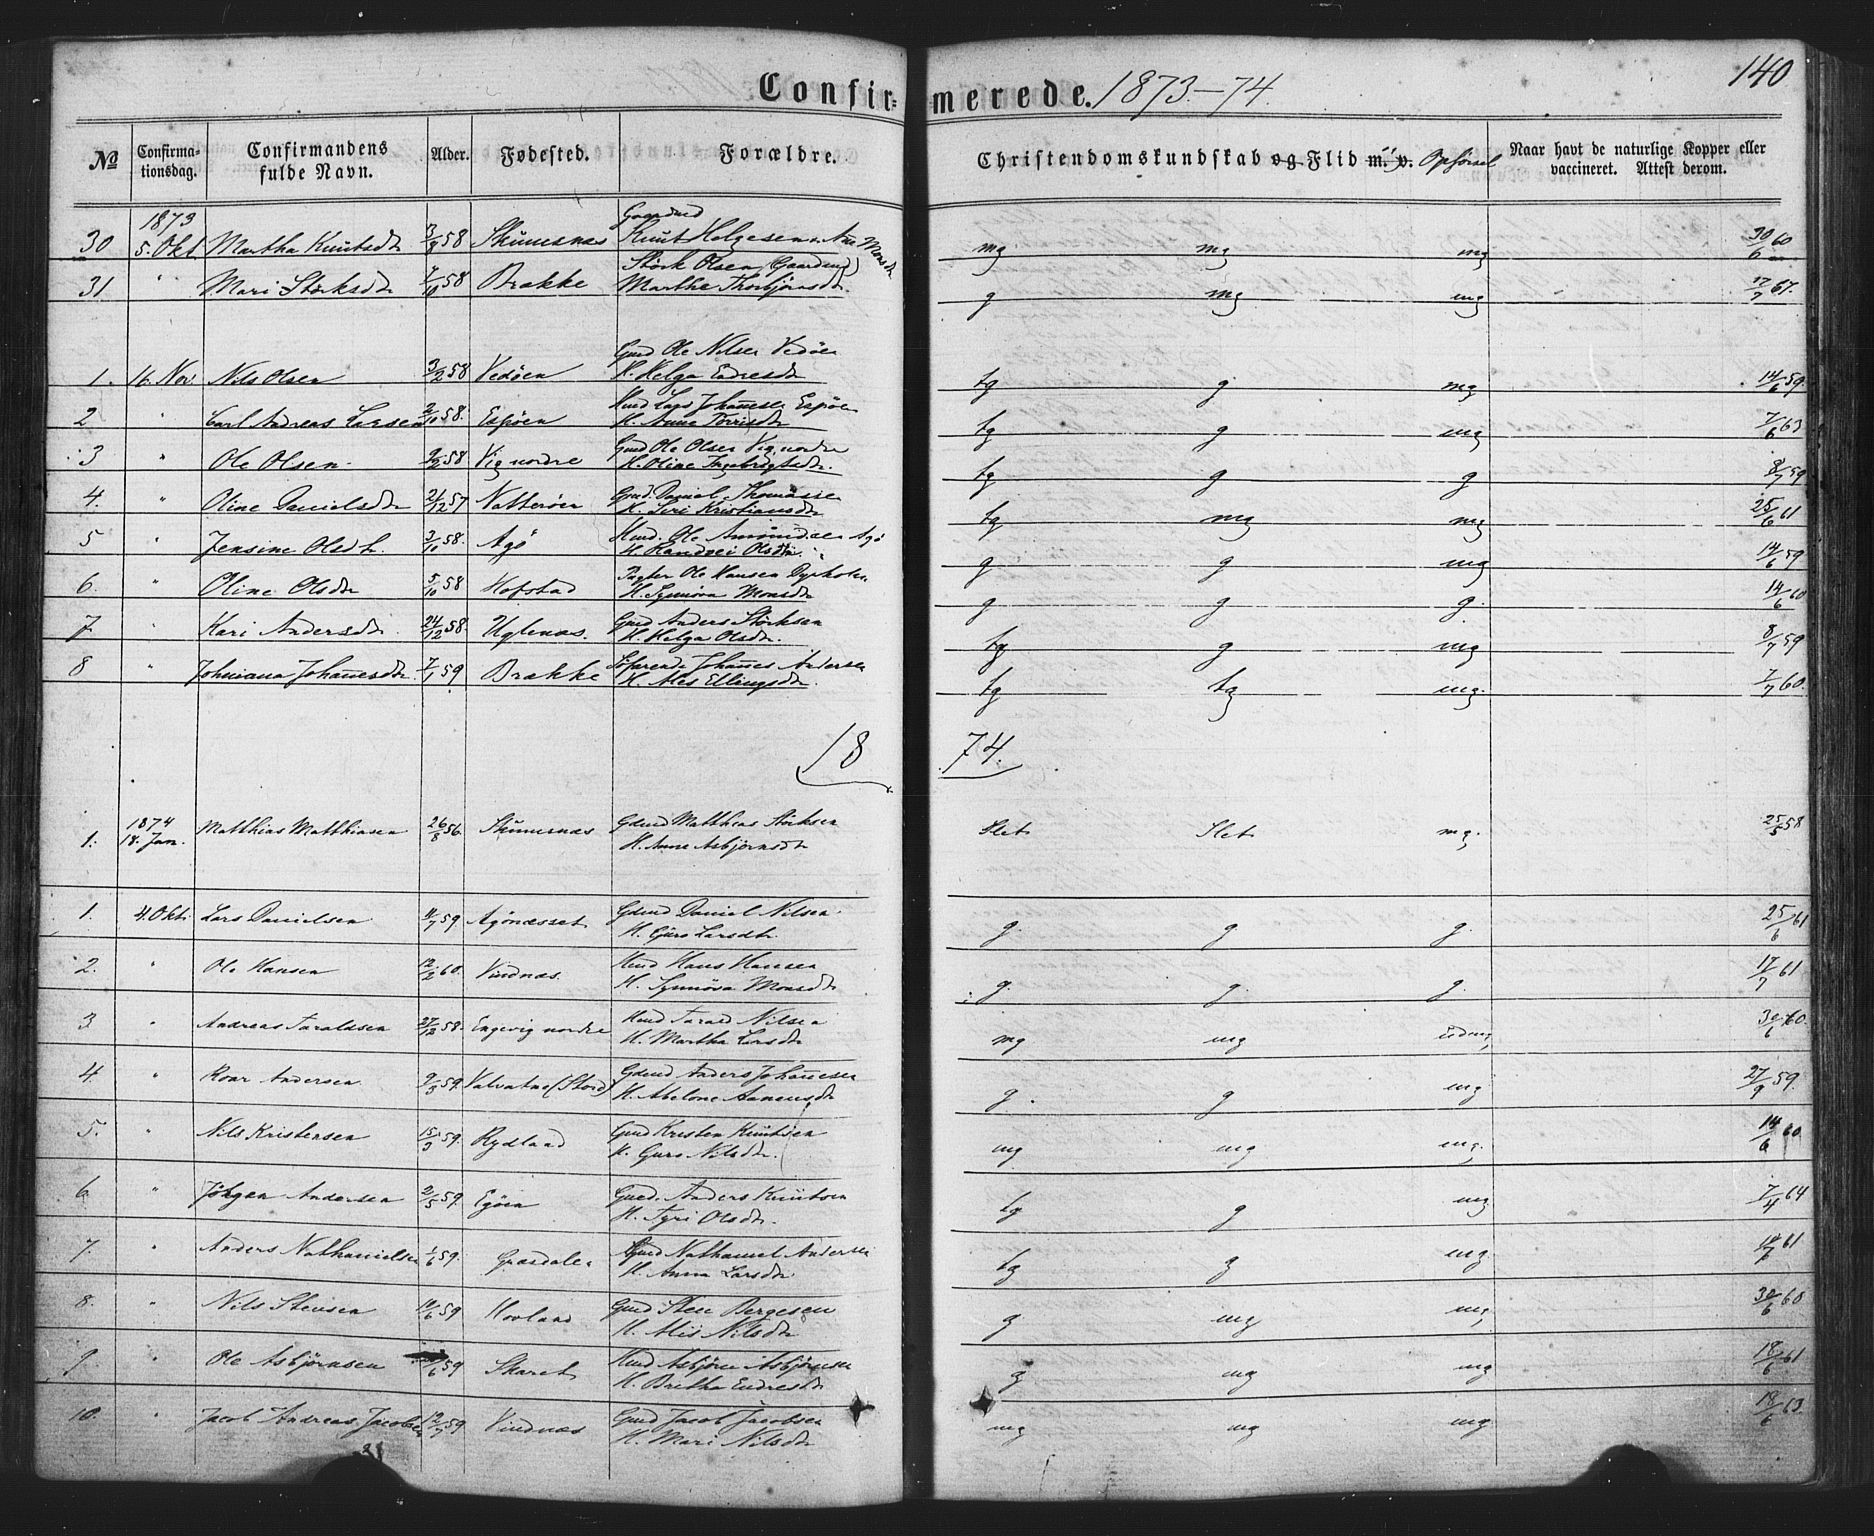 Confir= merede. 1873-74.
140
No
Confirma-
tionsdag.
Confirmandens
fulde Navn.
Alder.
Fødested.
Forældre.
Christendomskundskab og Flid m. v. Opførsel
Naar havt de naturlige Kopper eller
vaccineret. Attest derom.
1873
30 5. Okt Martha Knutsdtr 3/8 58 Skumsnæs Gaardmd Knut Helgesen Ane Monsdtr mg mg mg 30/6 60
31 " Mari Størksdtr 7/10 58 Brække Størk Olsen (Gaardmd) Marthe Thorbjørnsdtr g mg mg 17/7 67.
1. 16. Nov. Nils Olsen 3/2 58 Vedøen Gmd Ole Nilsen Vedøen H. Helga Endresdtr tg g mg 14/6 59.
2 " Carl Andreas Larsen 2/10 58. Espøen Hmd Lars Johannesen Espøen H. Anna Torrisdtr tg g mg 7/6 63
3 " Ole Olsen. 2/2 58 Vig nordre Gmd Ole Olsen Vig nordre H. Oline Ingebrigtsdtr. tg g g 8/7 59
4. " Oline Danielsdtr 21/12 57 Natterøen Gmd. Daniel Thomassen H. Siri Kristiansdtr tg mg mg 25/6 61
5 " Jensine Olsdtr. 3/10 58. Agø Hmd. Ole Amundsen Agø H. Randvei Olsdtr. g g mg 14/6 59
6. " Oline Olsdtr 5/10 58 Hofstad Pagter Ole Hansen H. Synnøva Monsdtr g g g. 14/6 60
7. " Kari Andersdtr. 24/12 58. Uglenæs. Gmd Anders Størksen H. Helga Olsdtr. tg g mg 8/7 59
8 " Johniana Johannesdtr. 7/1 59 Brække Søfarende Johannes Andersen H. Ales Ellingsdtr. tg tg mg. 7/7 60.
18 74.
1874
1. 18. Jan. Matthias Matthiasen 26/8 56. Skumsnæs Gdmd Matthias Størksen H. Anne Asbjørnsdtr Slet Slet mg. 25/5 58
1. 4. Okt. Lars Danielsen 11/7 59 Agønæsset Gdmd Daniel Nilsen. H. Guro Larsdtr. g. g g. 25/6 61
2. " Ole Hansen 12/2 60. Vindnæs. Hmd Hans Hansen H. Synnøva Monsdtr g. g. g. 17/7 61
3 " Andreas Taraldsen 27/12 58. Engevig nordre Hmd Tarald Nilsen H. Martha Larsdtr mg mg udm, 30/6 60.
4. " Roar Andersen 9/3 59. Valvatne (Stord) Gdmd Anders Johannesen H. Abelone Aanensdtr g. g mg 27/9 59.
5. " Nils Kristensen 15/3 59. Rydland Gmd Kristen Knutsen H. Guro Nilsdtr. mg mg mg. 14/6 60
6. " Jørgen Andersen 2/5 59. Egøen Gmd. Anders Knutsen H. Tyri Olsdtr. tg g mg 7/4 64
7. " Anders Nathanielsen 1/6 59. Græsdalen Gmd Nathaniel Andersen H. Anna Larsdtr. tg g mg 14/6 61
8. " Nils Stensen 10/6 59 Hovland Gmd Sten Bergesen H. Alis Nilsdtr g mg mg, 30/6 60
9. " Ole Asbjørnsen /6 59 Skaret Hmd Asbjørn Asbjørnsen H. Britha Endresdtr g mg mg 18/6 61
10. " Jacob Andreas Jacobsen 12/7 59 Vindnæs Gmd Jacob Jacobsen H. Mari Nilsdtr mg mg mg. 18/6 63.